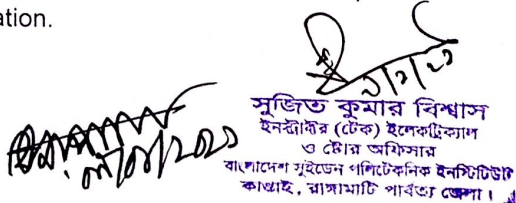 ation.
সুজিত কুমার বিশ্বাস
ইনস্ট্রাক্টর (টেক) ইলেকট্রিক্যাল
ও ষ্টোর অফিসার
বাংলাদেশ সুইডেন পলিটেকনিক ইনস্টিটিউট
কাপ্তাই, রাঙ্গামাটি পার্বত্য জেলা।